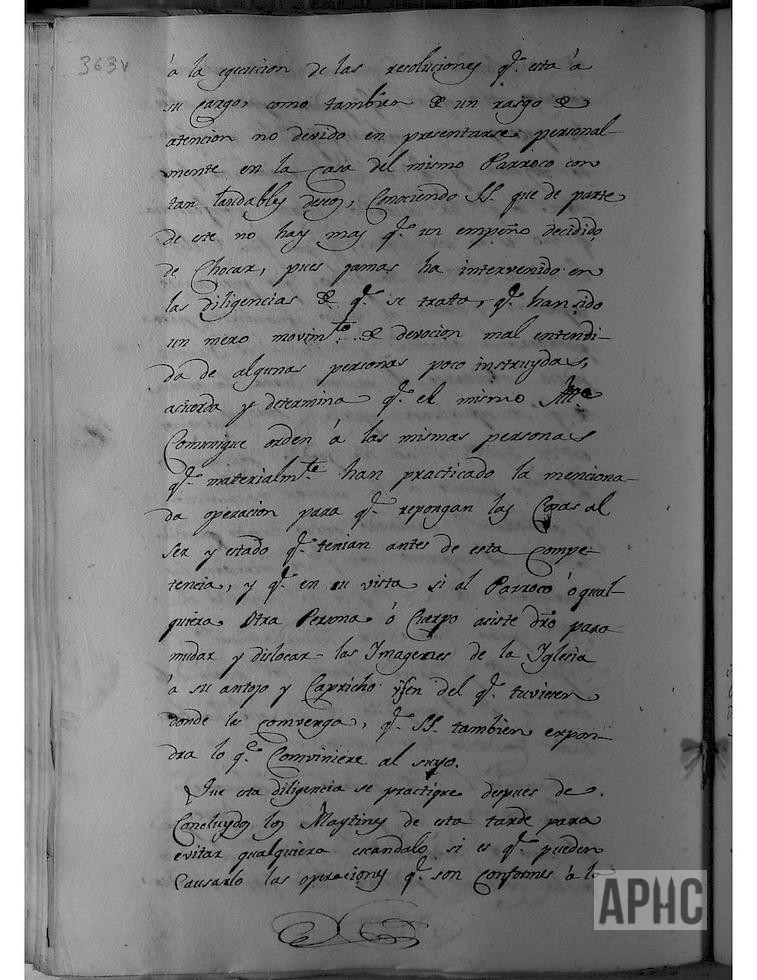 363v
á la egecucion de las resoluciones q.e esta á
su cargo, como tambien de un rasgo de
atencion no devido en presentarse personal-
mente en la Casa del mismo Parroco con
tan laudables deceos, Conociendo SS. que de parte
de este no hay mas q.e un empeño decidido
de Chocar, pues jamas ha intervenido en
las diligencias de q.e se trata, q.e han sido
un mero movim.to de devocion mal entendi-
da de algunas personas poco instruydas,
acuerda y determina q.e el mismo
Comunique orden á las mismas personas
q.e materialm.te han practicado la menciona-
da operacion para q.e repongan las Cosas al
ser y estado q.e tenian antes de esta Compe-
tencia, y q.e en su vista si al Parroco ó qual-
quiera Otra Persona ó Cuerpo asiste dro para
mudar y dislocar las Imagenes de la Yglesia
á su antojo y Capricho usen del q.e tuvieren
donde les comvenga, q.e SS. tambien expon-
dra lo q.e Comviniere al suyo.
Que esta diligencia se practique despues de
Concluydos los Maytines de esta tarde para
evitar qualquiera escandalo si es q.e pueden
Causarlo las operaciones q.e son Conformes á la
APHC